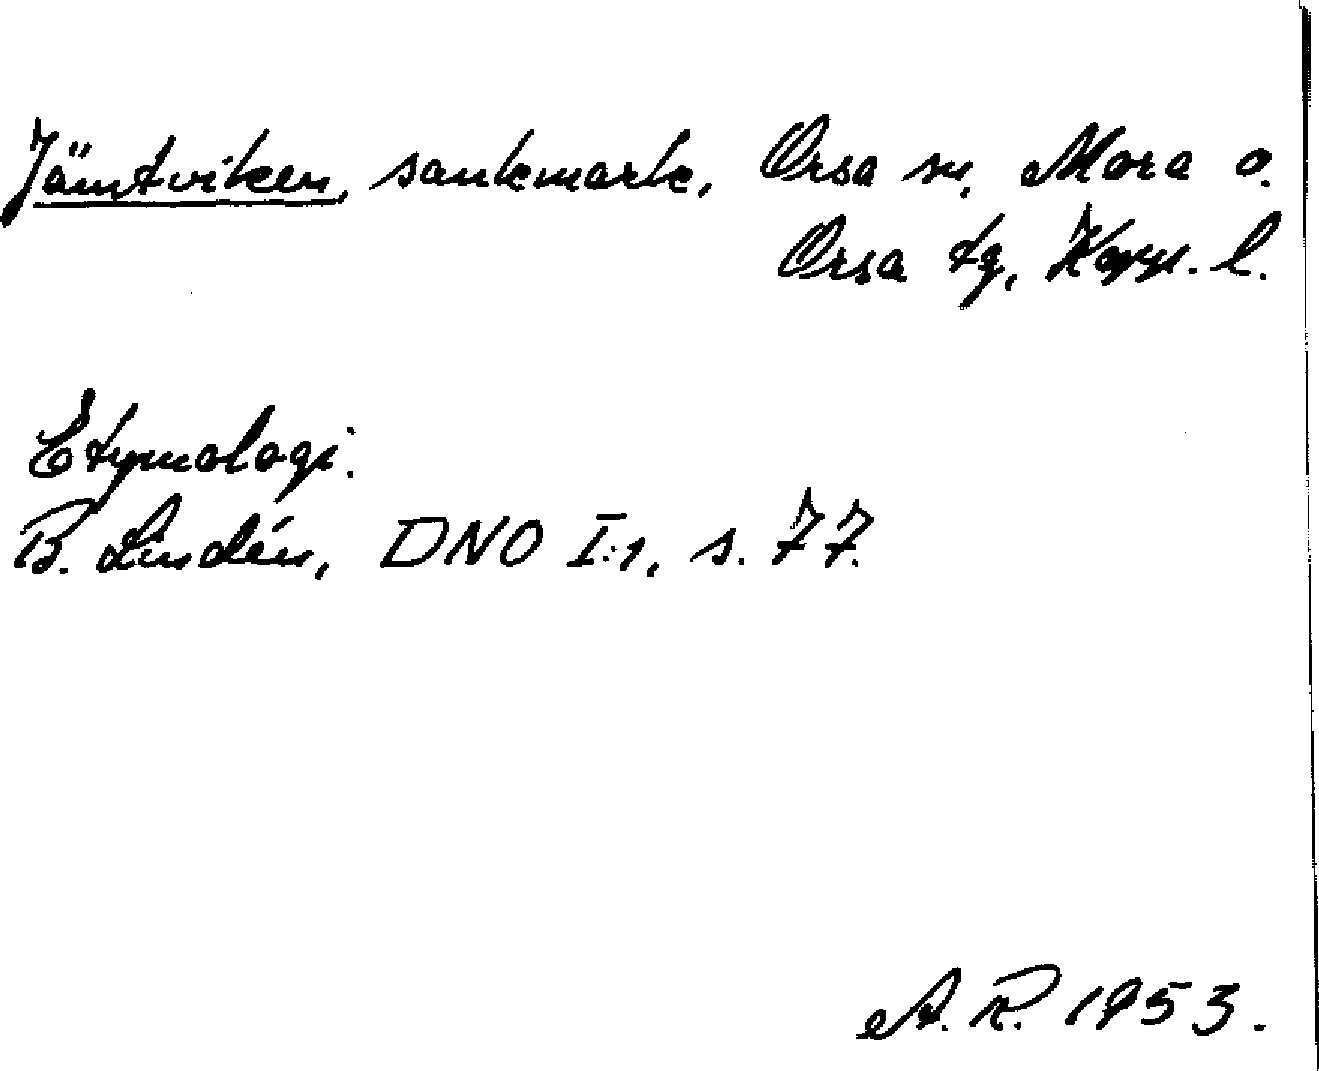 Jämtviken, sankmark, Orsa sn, Mora o.
Orsa tg, Kopp. l.
Etymologi:
B. Lindén, DNO I:1, s. 77.
A. R. 1953.